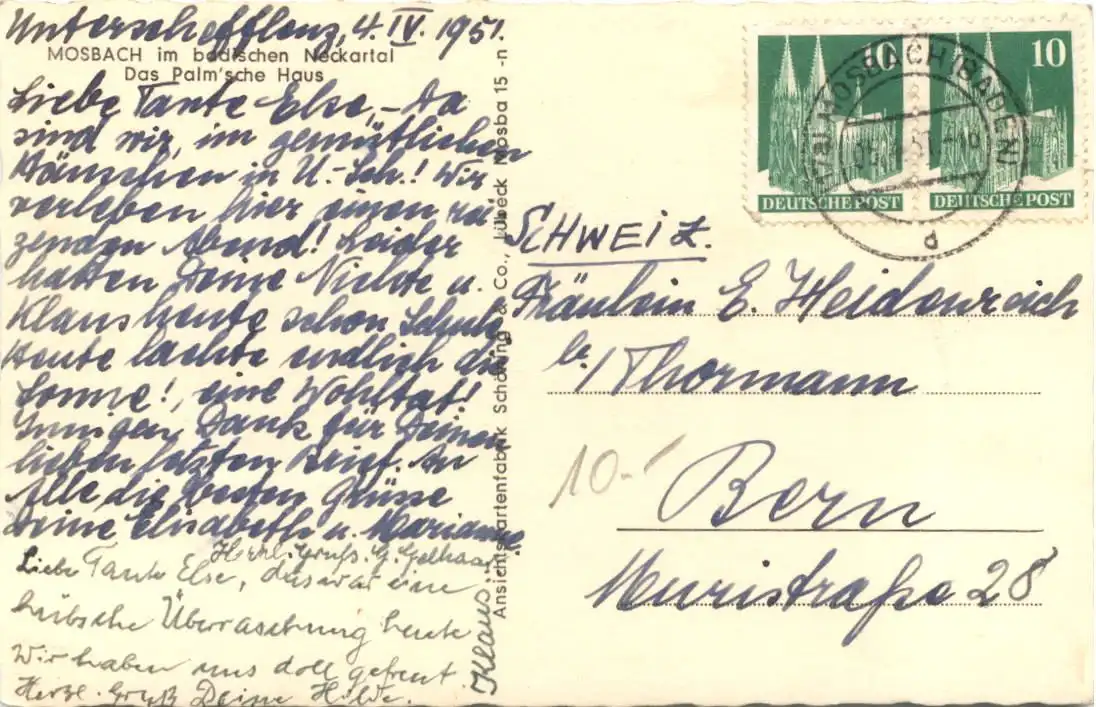 Unterschefflenz, 4. IV. 1951.
MOSBACH im badischen Neckartal
Das Palm'sche Haus
Liebe Tante Else, - Da
sind wir, im gemütlichen
Häuschen in U.-Sch.! Wir
verleben hier einen rei-
zenden Abend! Leider
hatten Deine Nichte u.
Klaus heute schon Schule
Heute lachte endlich die
Sonne!, eine Wohltat!
Innigen Dank für Deinen
lieben letzten Brief. An
Alle die besten Grüsse
Deine Elisabeth u. Marianne
Herzl. Gruß. G. Gelhaar
Liebe Tante Else, das war eine
hübsche Überraschung heute
Wir haben uns doll gefreut.
Herzl. Gruß Deine Hilde.
Klaus.
Ansichtskartenfabrik Schöning & Co., Lübeck Mosba 15 -n
10
DEUTSCHE POST
10
DEUTSCHE POST
MOSBACH (BADEN)
d
SCHWEIZ.
Fräulein E. Heidenreich
b/Thormann
10.-
Bern
Muristraße 28